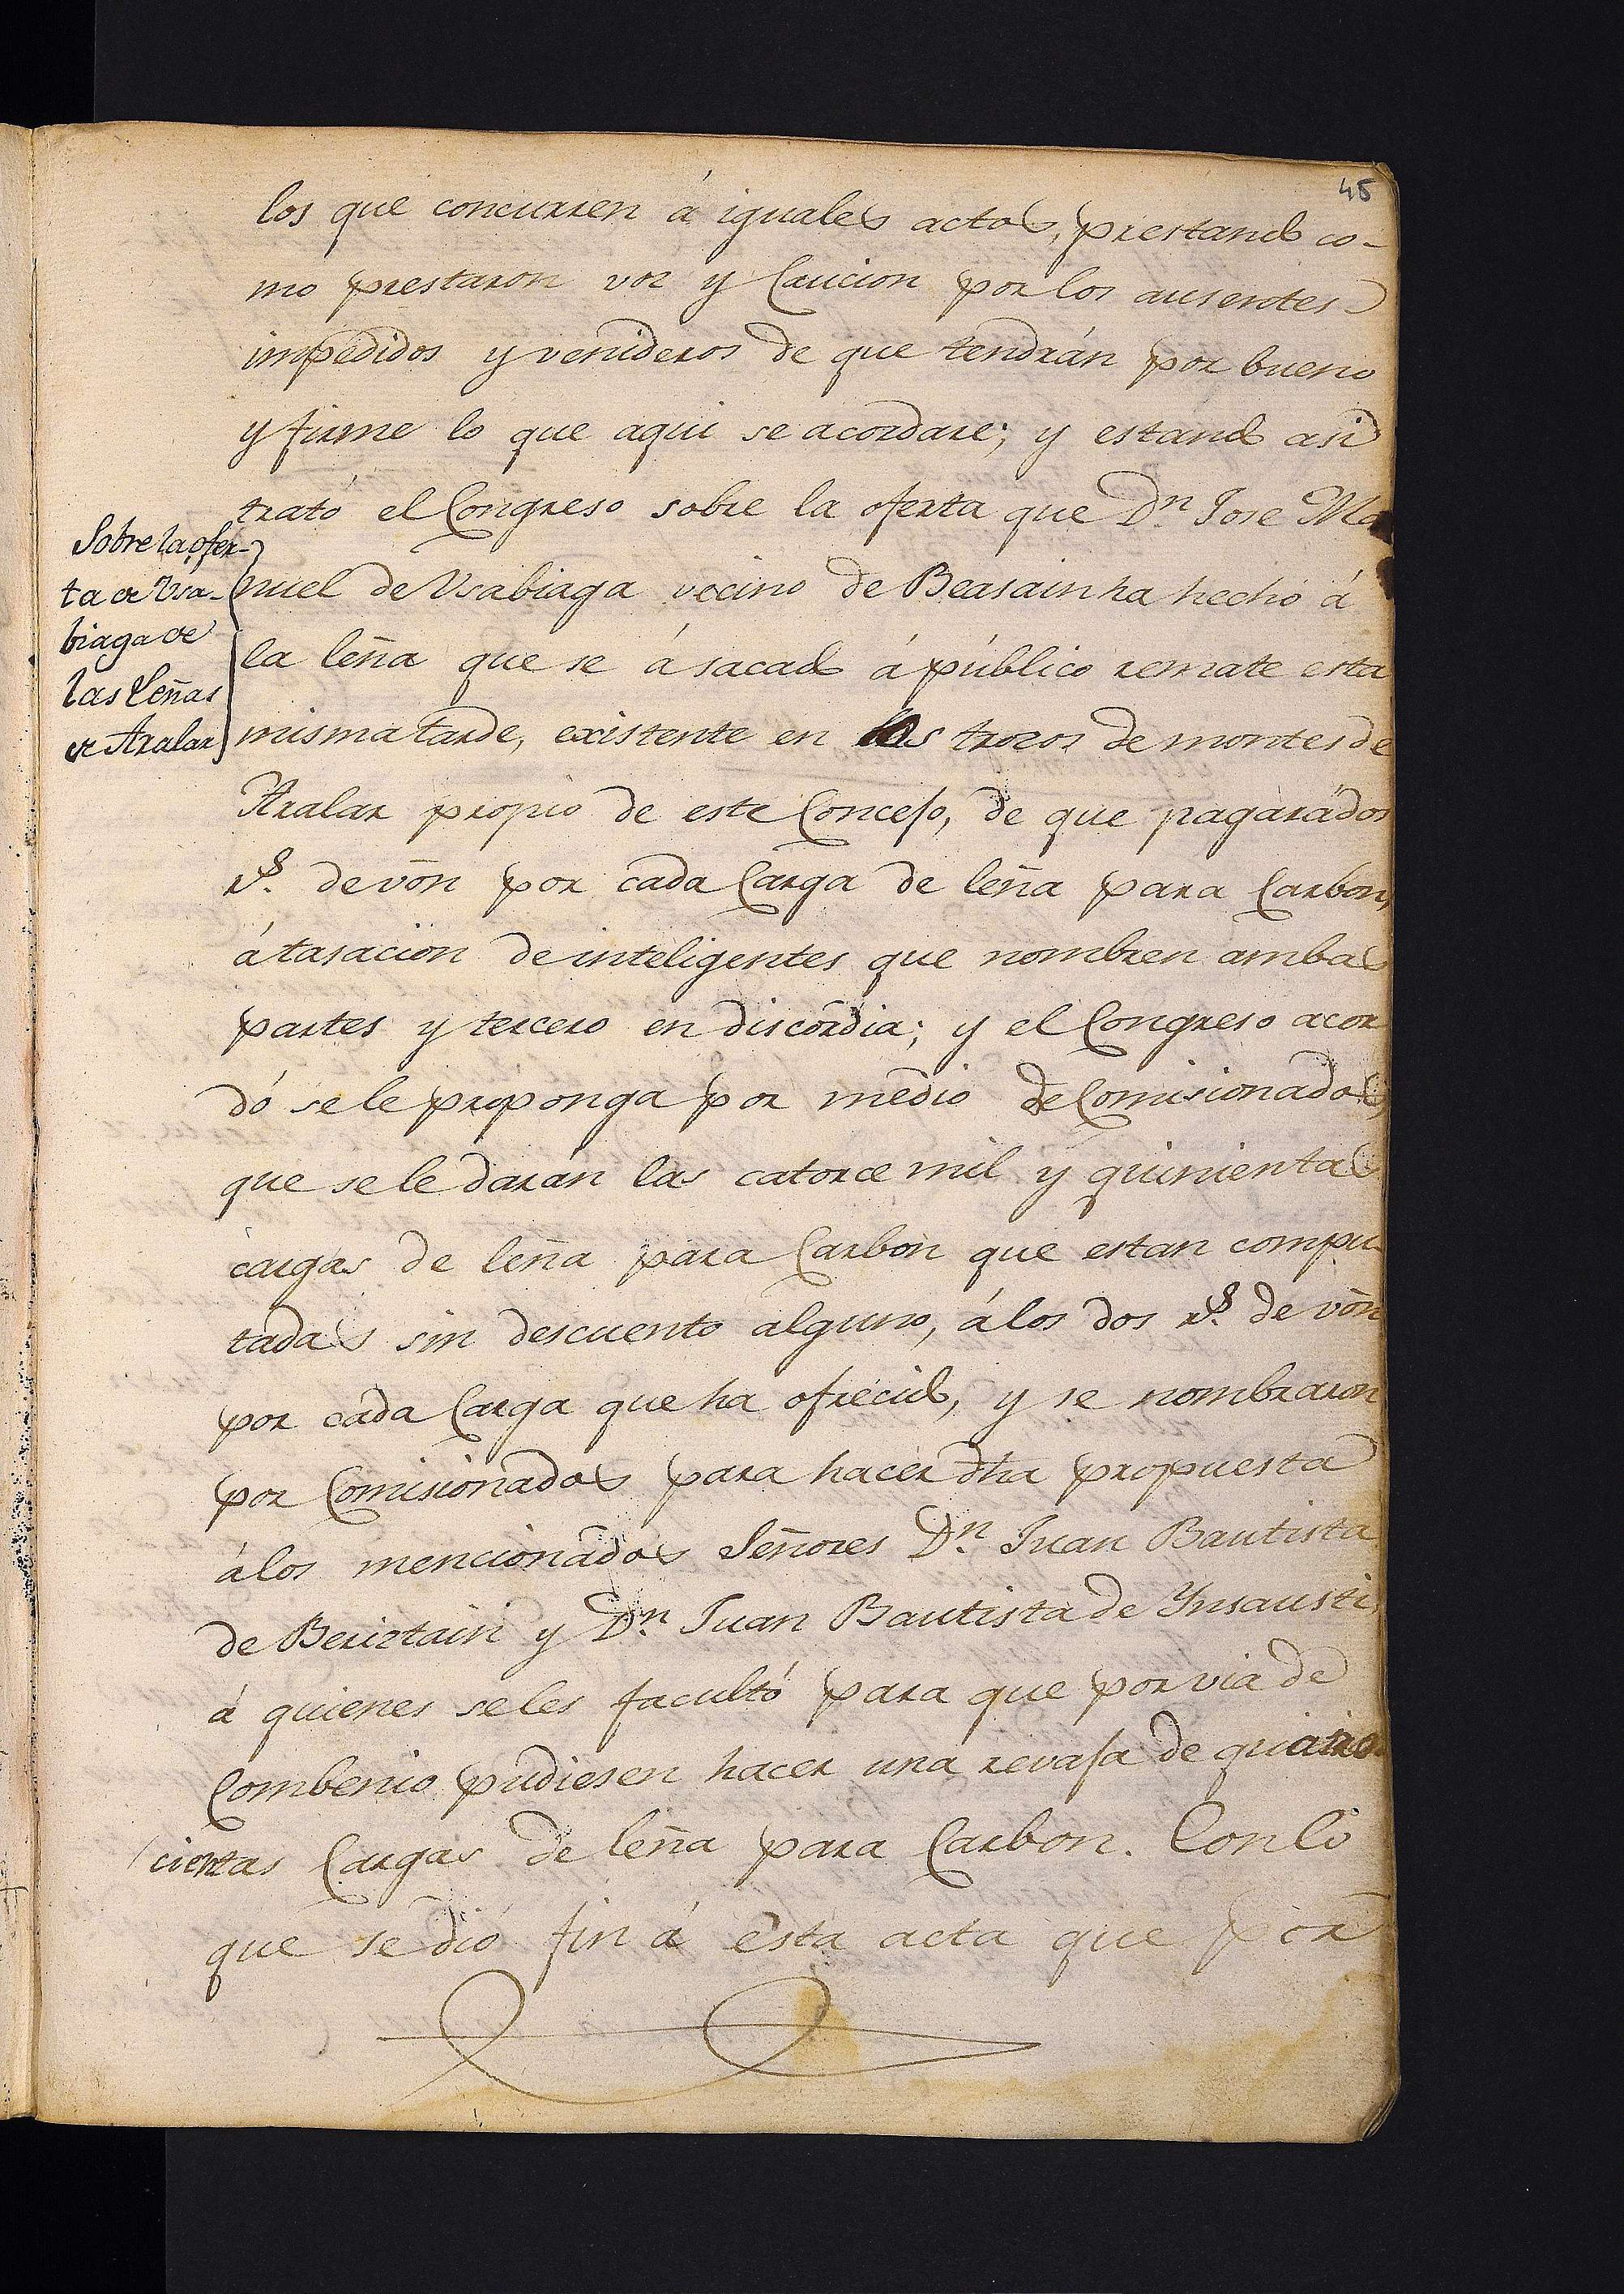 45
los que concurren á iguales actos, prestando co-
mo prestaron voz y Caucion por los ausentes
impedidos y venideros de que tendrán por bueno
y firme lo que aqui se acordare; y estando asi
trató el Congreso sobre la oferta que Dn. Jose Ma
nuel de Usabiaga vecino de Beasain ha hecho á
la leña que se á sacado á público remate esta
misma tarde, existente en los trozos de montes de
Aralar propio de este Concejo, de que pagará dos
rs. de von por cada Carga de leña para Carbon,
á tasacion de inteligentes que nombren ambas
partes y tercero en discordia; y el Congreso acor
dó se le proponga por medio de Comisionados
que se le daran las catorce mil y quinientas
cargas de leña para Carbon que estan compu-
tadas sin descuento alguno, á los dos rs. de von
por cada Carga que ha ofrecido, y se nombraron
por Comisionados para hacer dha propuesta
á los mencionados Señores Dn. Juan Bautista
de Beriztain y Dn. Juan Bautista de Ynsausti
á quienes se les facultó para que por via de
Combenio pudiesen hacer una revaja de quatro-
cientas Cargas de leña para Carbon. Con lo
que se dió fin á esta acta que por
Sobre la ofer-
ta de Usa-
biaga de
las Leñas
de Aralar